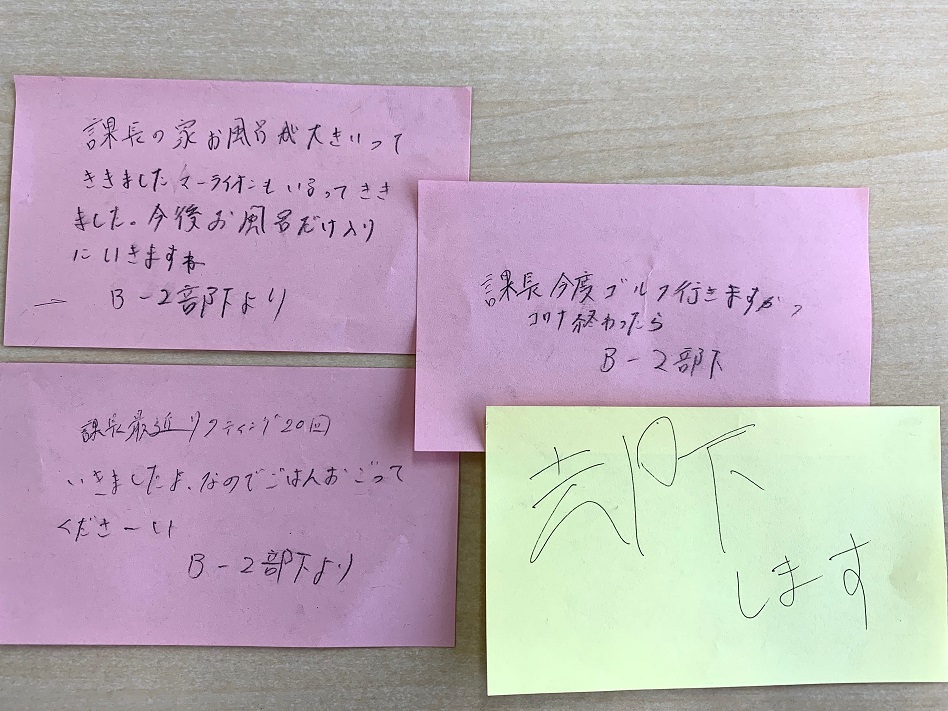 課長の家お風呂が大きいって
ききましたマーライオンもいるってきき
ました。今後お風呂だけ入り
にいきますね
→ B-2部下より
課長今度ゴルフ行きますか?
コロナ終わったら
B-2部下
課長最近リフティング20回
いきましたよ、なのでごはんおごって
くださーい
B-2部下より
却下
します